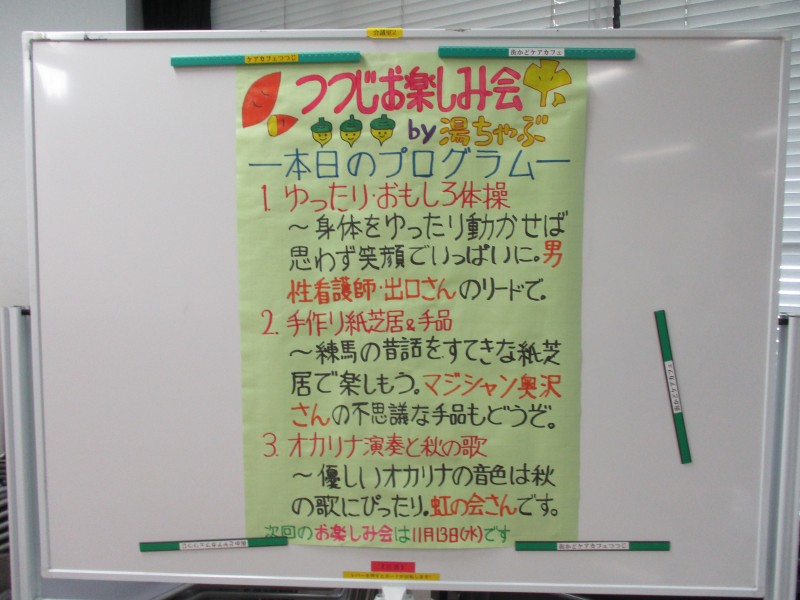 ケアカフェつつじ
街かどケアカフェ
つつじお楽しみ会
by 湯ちゃぶ
―本日のプログラム―
1. ゆったり・おもしろ体操
～身体をゆったり動かせば
思わず笑顔でいっぱいに。男
性看護師・出口さんのリードで。
2. 手作り紙芝居&手品
～練馬の昔話をすてきな紙芝
居で楽しもう。マジシャン奥沢
さんの不思議な手品もどうぞ。
3. オカリナ演奏と秋の歌
～優しいオカリナの音色は秋
の歌にぴったり。虹の会さんです。
次回のお楽しみ会は11月13日(水)です
街かどケアカフェつつじ
街かどケアカフェつつじ